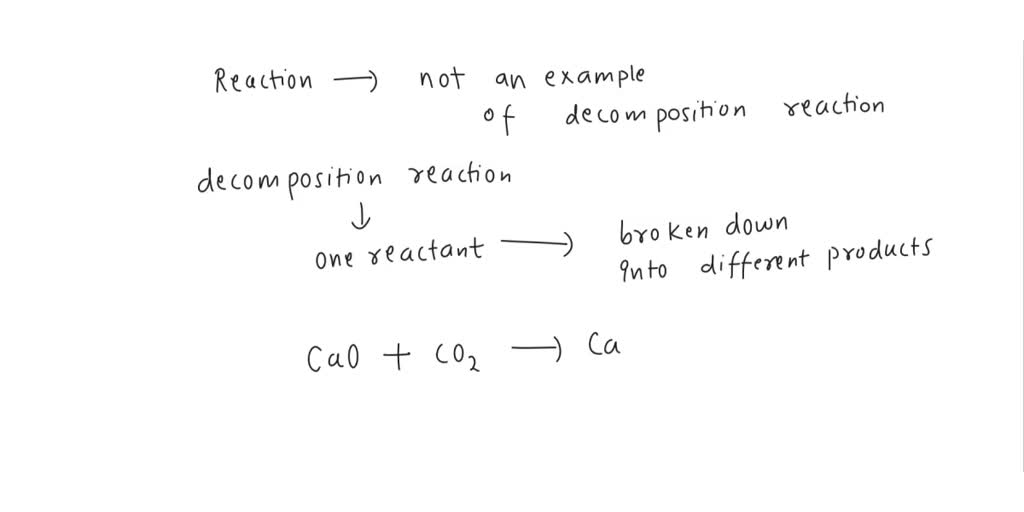 Reaction → not an example
of decomposition reaction
decomposition reaction
↓
one reactant → broken down
into different products
CaO + CO₂ → Ca